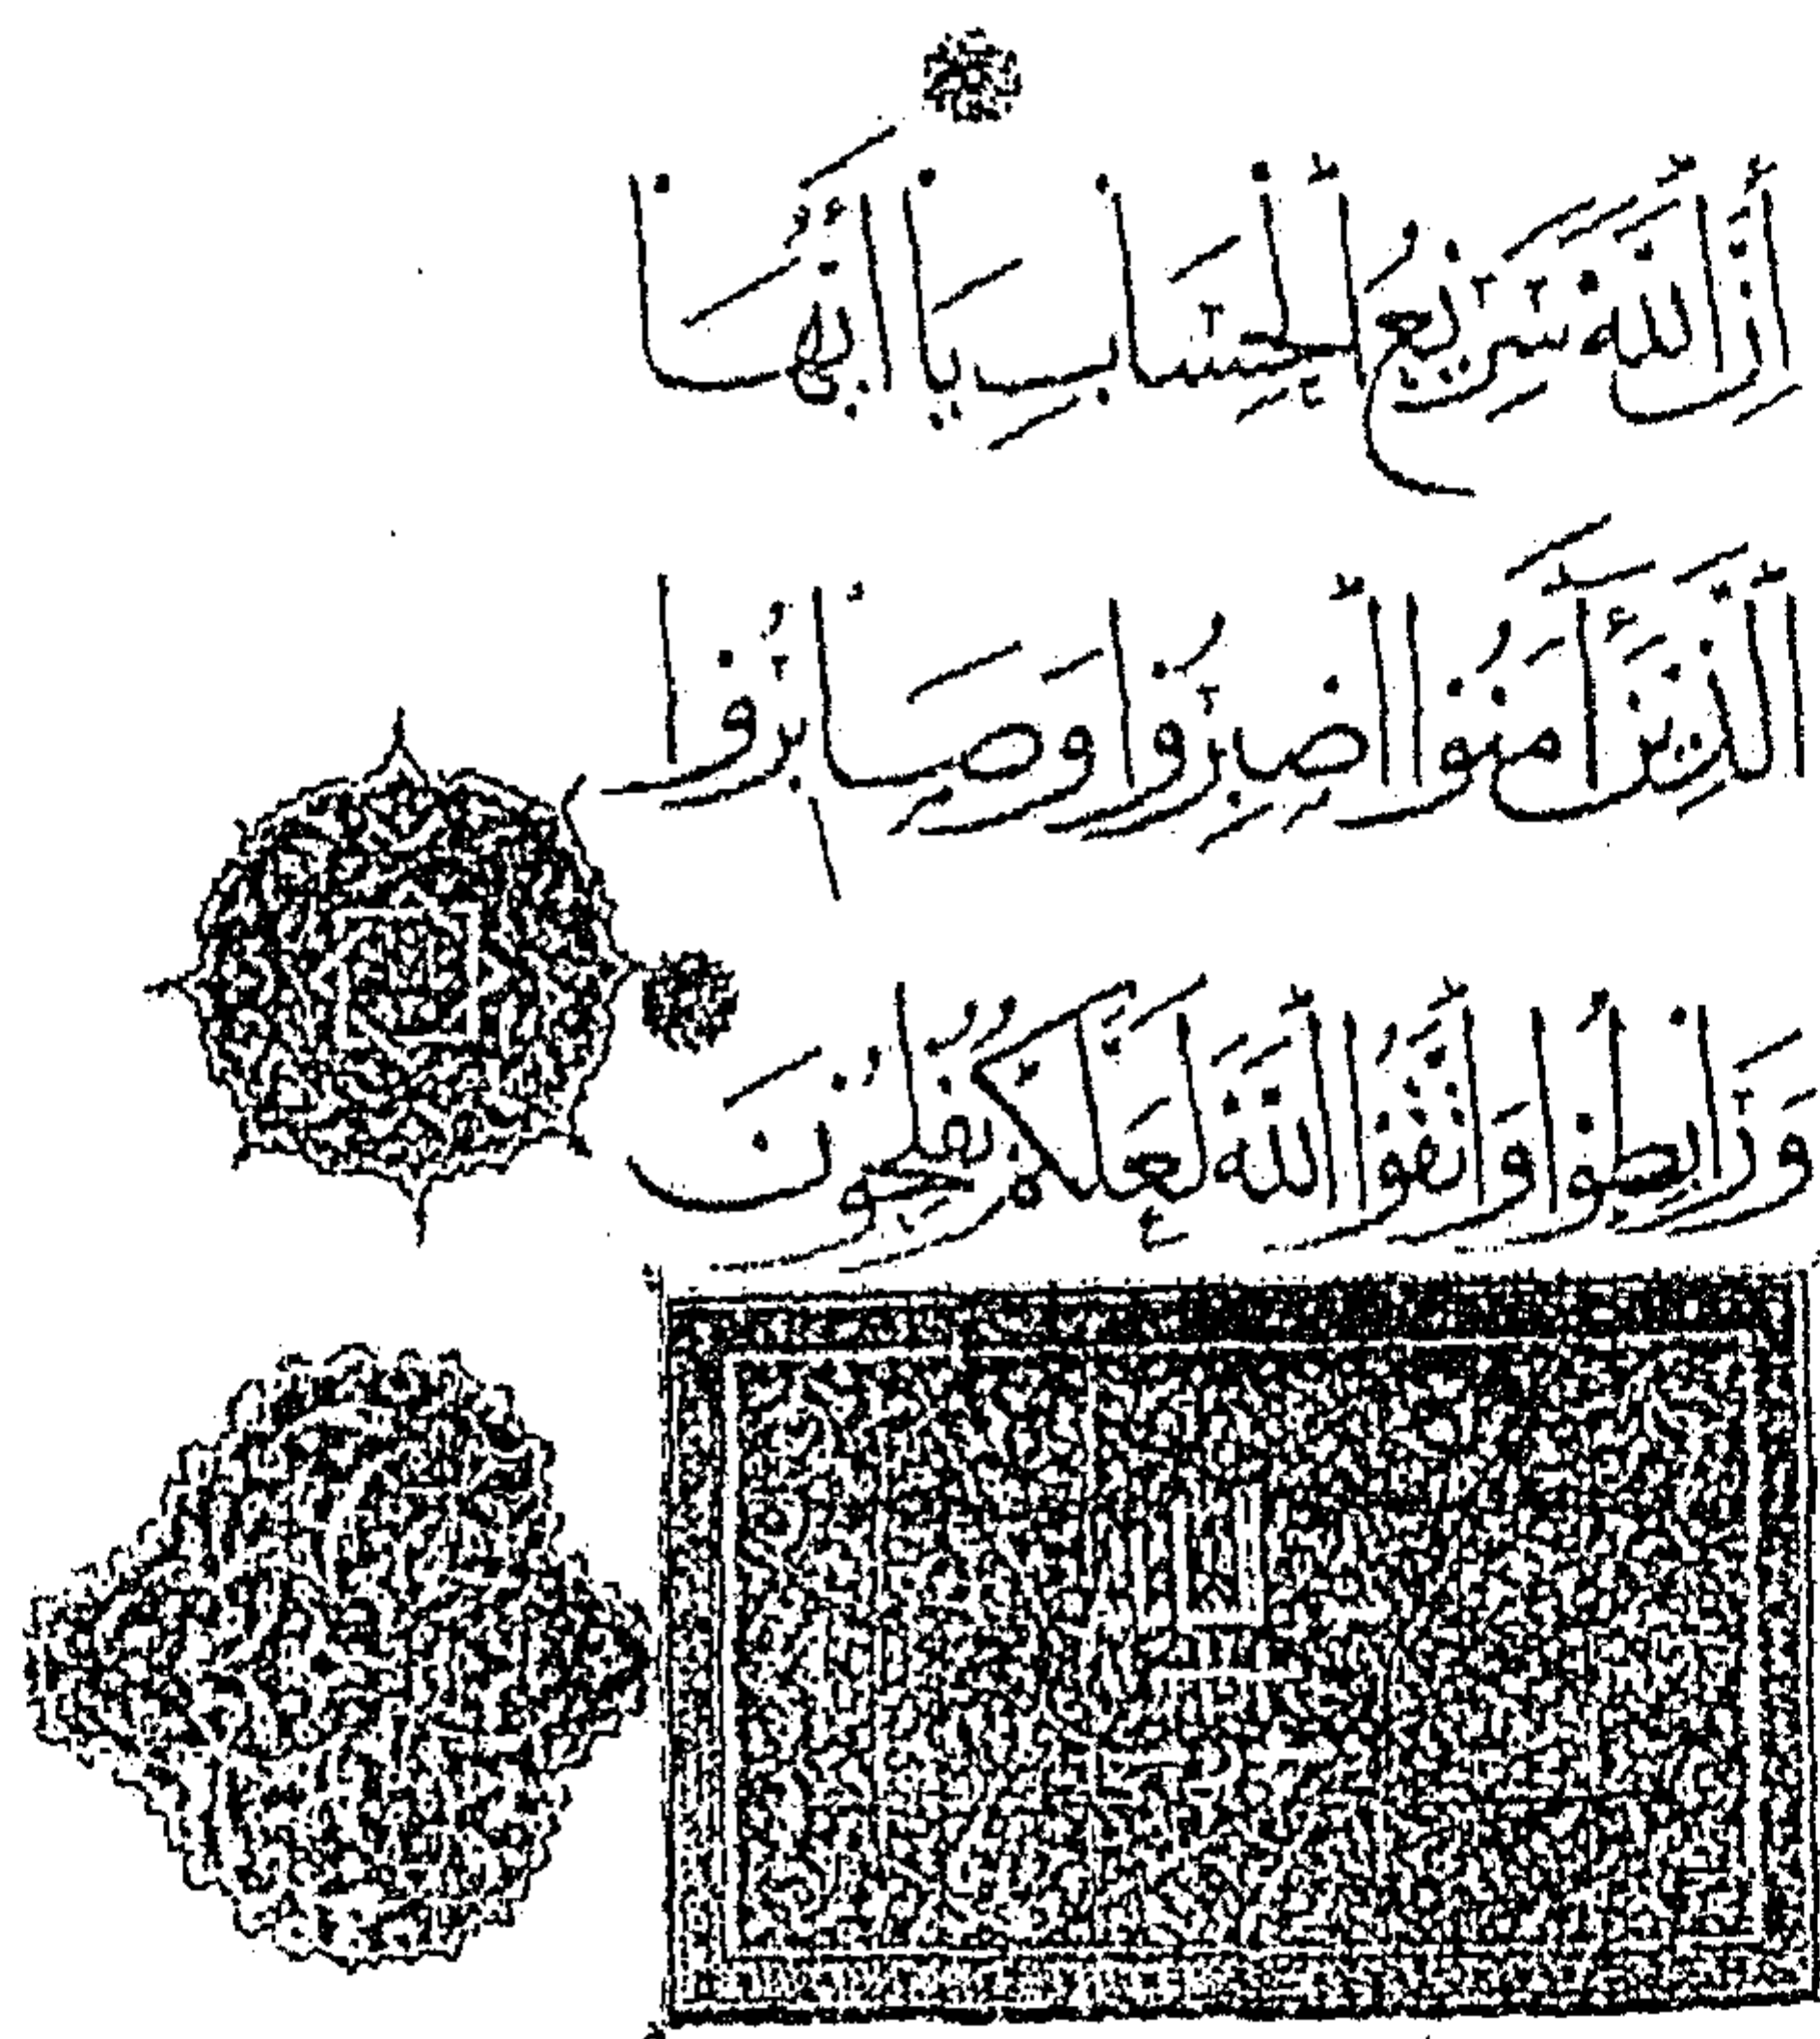 إِنَّ اللَّهَ سَرِيعُ الْحِسَابِ يَا أَيُّهَا
الَّذِينَ أَمَنُوا اصْبِرُوا وَصَابِرُوا
وَرَابِطُوا وَاتَّقُوا اللَّهَ لَعَلَّكُمْ تُفْلِحُونَ